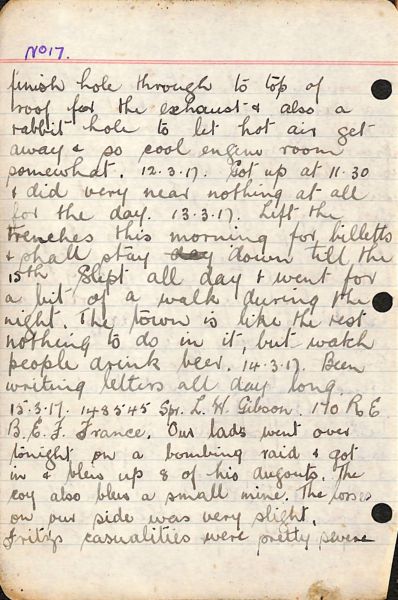 No 17.
finish hole through to top of
roof for the exhaust & also a
rabbit hole to let hot air get
away & so cool engine room
somewhat. 12.3.17. Got up at 11.30
& did very near nothing at all
for the day. 13.3.17. Left the
trenches this morning for billetts
& shall stay day down till the
15th Slept all day & went for
a bit of a walk during the
night. The town is like the rest
nothing to do in it, but watch
people drink beer. 14.3.17. Been
writing letters all day long.
15.3.17. 148545 Spr. L. W. Gibson. 170 R E
B.E.F. France. Our lads went over
tonight on a bombing raid & got
in & blew up 8 of his dugouts. The
coy also blew a small mine. The losses
on our side was very slight.
Fritz's casualities were pretty severe